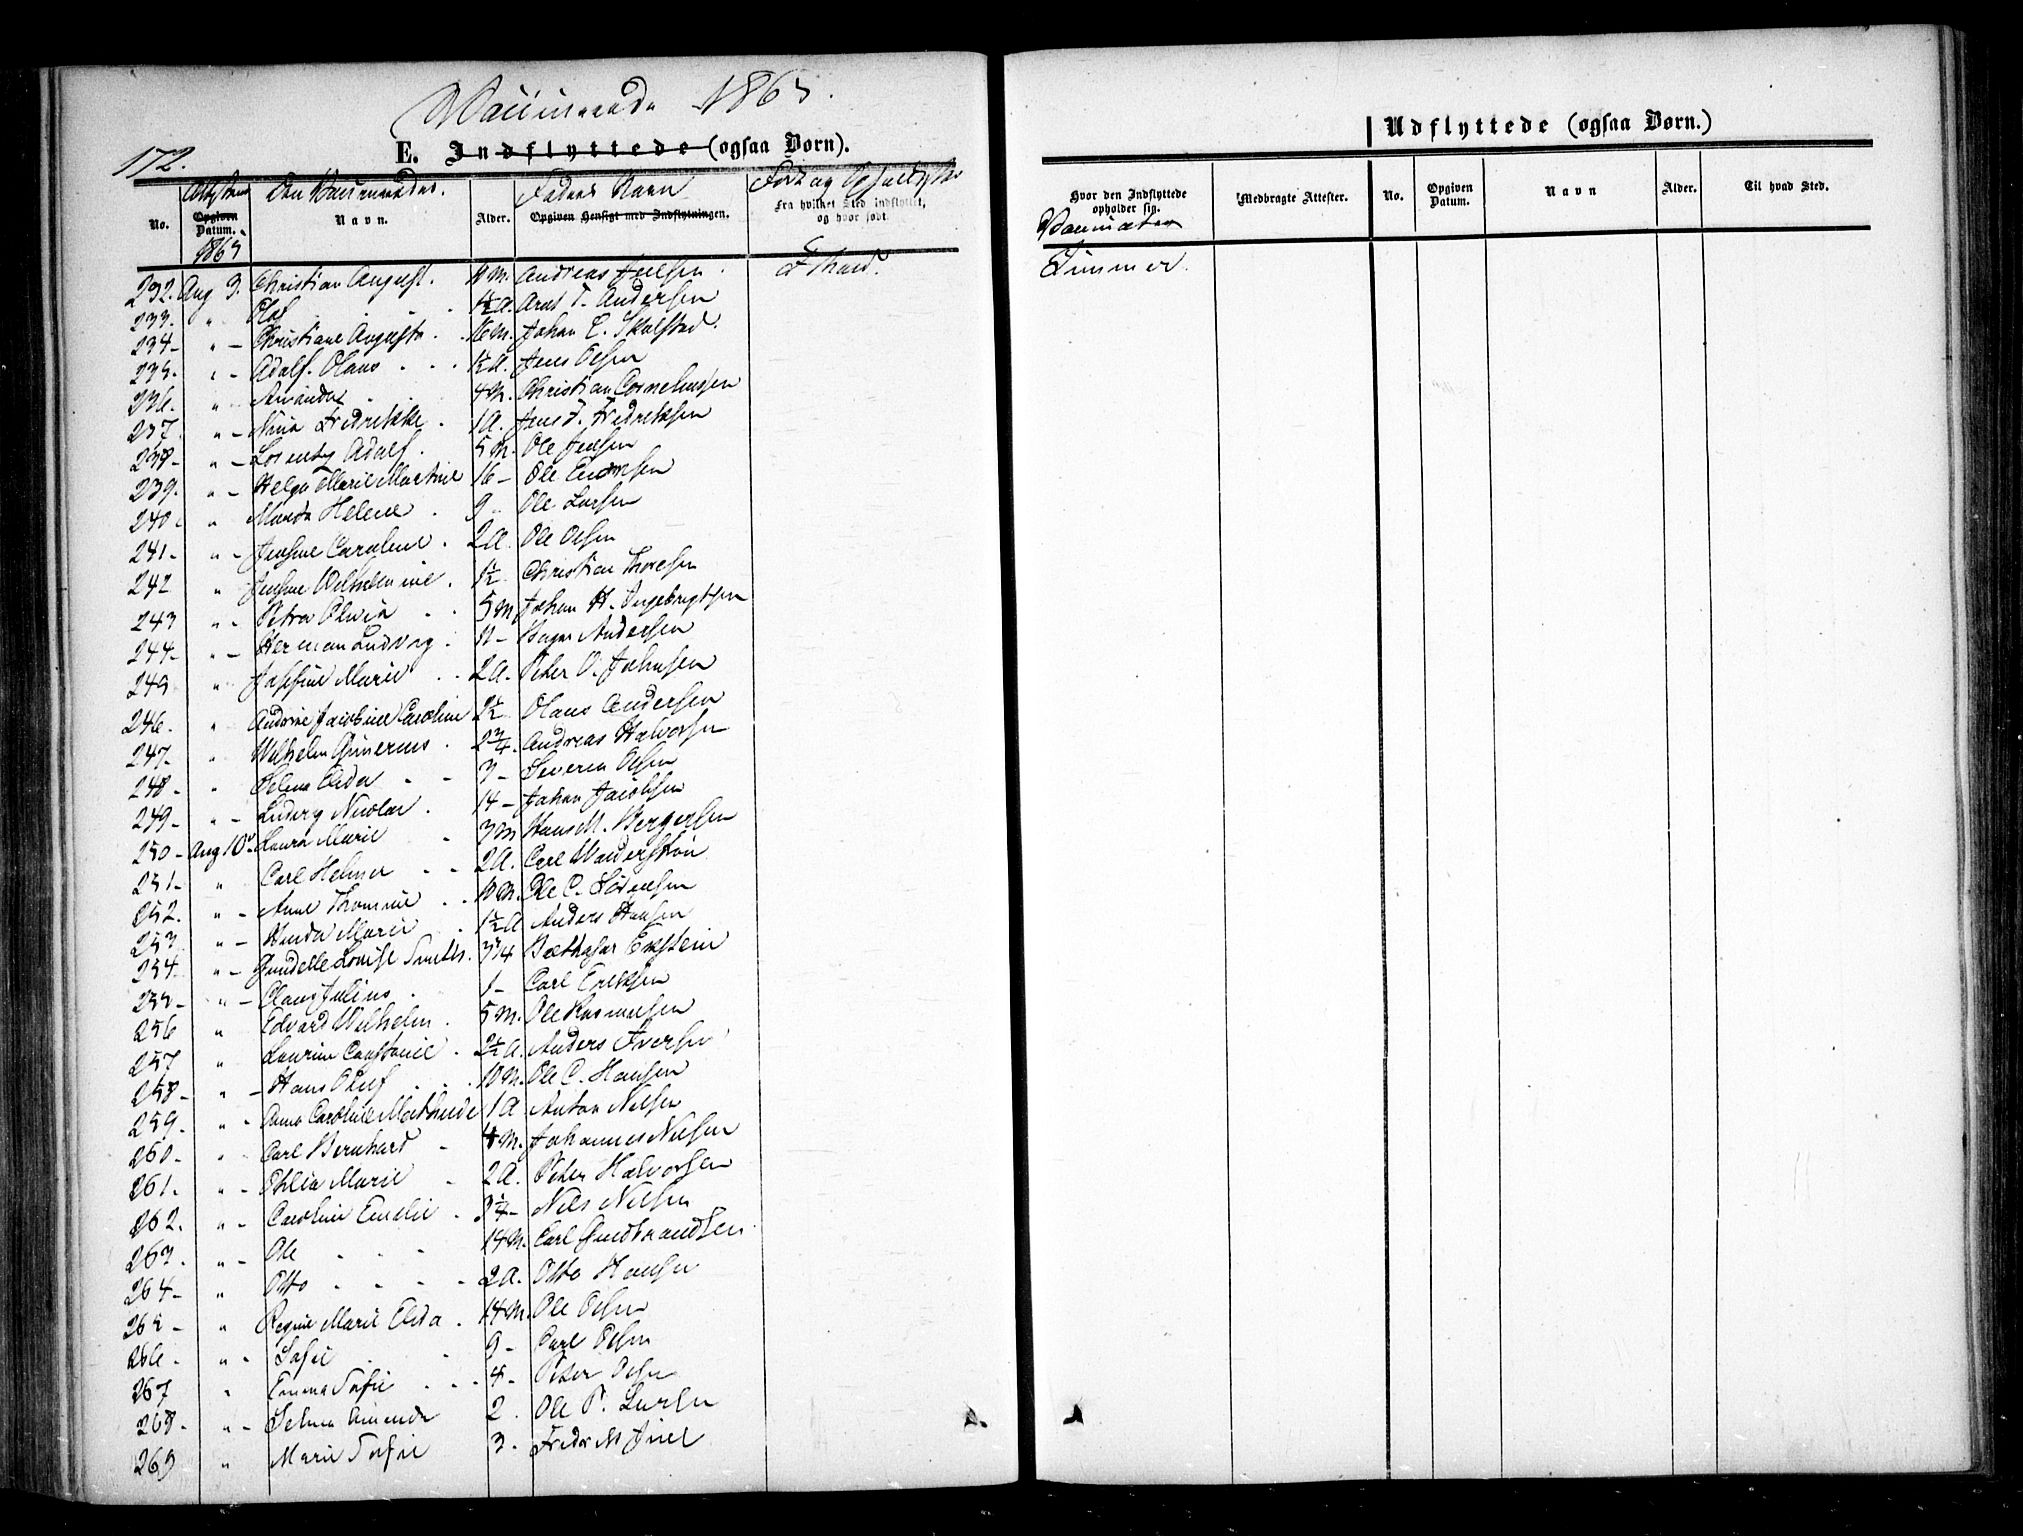 Vaccinerede 1865.
172.
E. Indflyttede (ogsaa Børn).
Den Vaccineredes Faders Navn
No. Opgiven Datum. Navn. Alder. Opgiven Hensigt med Indflytningen. Fra hvilket Sted indflyttet, og hvor født.
1865
232. Aug 3. Christian August. 4 M. Andreas Jensen.
233. " Olaf 1½ A. Arnt T. Andersen
234- " - Christiane Augusta 16 M. Johan E. Skolstad.
235. " - Adolf Olaus 1½ A. Jens Olsen
236. " Amanda 4 M. Christian Corneliussen
237. " - Nina Fredrikke 1 A. Jens F. Fredriksen
238- " - Lorentz Adolf. 5 M. Ole Jensen
239. " - Helga Marie Martine 16 - Ole
240. " Helene 9 " Ole Larsen
241- " - Jensine Caroline. 2 A. Ole Olsen
242 " Jensine Wilhelmine. 1½ Christian Thoresen
243 " - Petra Olivia 5 M Johan H. Ingebrigtsen
244- " - Herman Ludvig. 11 - Andersen
245 " Josefine Marie 2 A. Peter O. Johnsen
246. " Andrine Jacobine Caroline 2½ Olaus Andersen
247- " Wilhelm Gunerius 2¾. Andreas Halvorsen
248- " Elida 3 - Severin Olsen
249- " - Ludvig Nicolai. 14 - Johan Jacobsen
250 - Aug 10. Laura Marie 3 M Hans M. Bergersen
251- " Carl Helmer 2 A. Carl
252. " - Anne Thomine 10 M. Ole C. Sørensen
253 " - Hulda Marie 1½ A Anders Hansen
254- " - Gundelle Louise 3¼ Balthasar Eckstein
255- " - Claus Julius. 1 - Carl Eriksen
256 " Edvard Wilhelm. 5 M. Ole Rasmussen
257 " Laurine Constance. 2½ A. Anders Iversen
258- " - Hans Oluf 10 M. Ole C. Hansen
259. " - Anna Caroline Mathilde 1 A Anton Nilsen
260- " - Carl Bernhard 4 M. Johannes Nilsen
261. " - Othilia Marie 2 A. Peter Halvorsen
262. " - Caroline Emelie 3¼ - Nils Nilsen
263. " - Ole 14 M. Carl Gudbrandsen
264- " Otto 2 A. Otto Hansen
265 - " Regine Marie Elida. 14 M. Ole Olsen
266. " - Sofie 9 - Carl Olsen
267 " Emma Sofie 4 - Peter Olsen
268- " - Selma Amanda 2. Ole P. Larsen
269 " Marie Sofie 3. Fredr M Juel
Udflyttede (ogsaa Børn.)
Hvor den Indflyttede opholder sig. Medbragte Attester. No. Opgiven Datum. Navn Alder. Til hvad Sted.
Vaccinator
Zimmer.